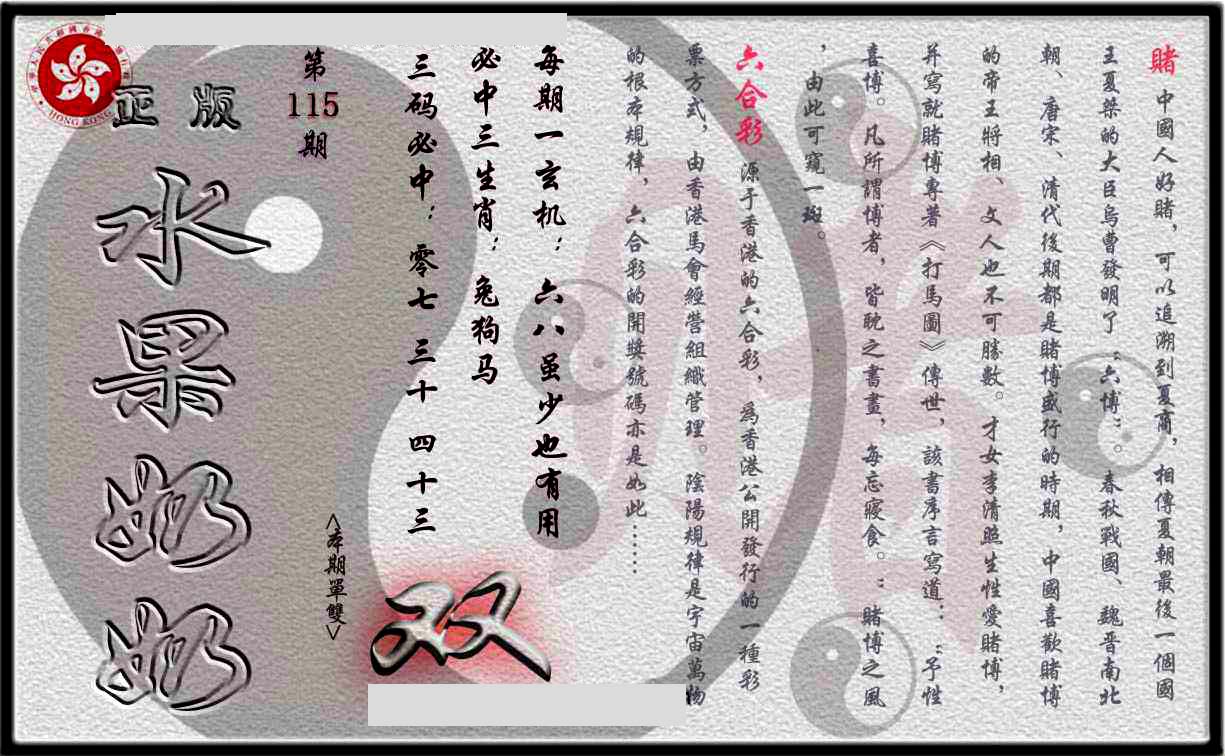 賭 中國人好賭，可以追溯到夏商，相傳夏朝最後一個國
王夏桀的大臣烏曹發明了“六博”。春秋戰國、魏晉南北
朝、唐宋、清代後期都是賭博盛行的時期，中國喜歡賭博
的帝王將相、文人也不可勝數。才女李清照生性愛賭博，
并寫就賭博專著《打馬圖》傳世，該書序言寫道：“予性
喜博。凡所謂博者，皆耽之書畫，每忘寢食。”賭博之風
，由此可窺一斑。
六合彩 源于香港的六合彩，爲香港公開發行的一種彩
票方式，由香港馬會經營組織管理。陰陽規律是宇宙萬物
的根本規律，六合彩的開獎號碼亦是如此……
每期一玄机：六八虽少也有用
必中三生肖：兔狗马
三码必中：零七 三十 四十三
双
<本期單雙>
第
115
期
正版
水果奶奶
HONG KONG